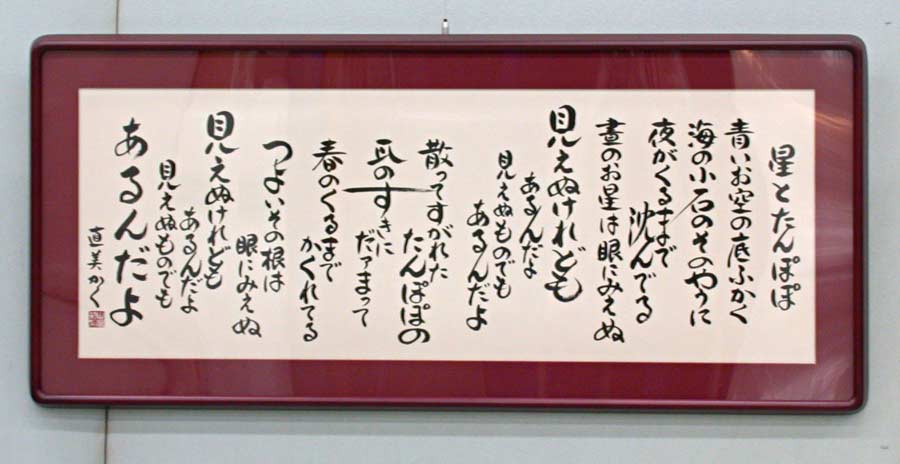 星とたんぽぽ
青いお空の底ふかく
海の小石のそのやうに
夜がくるまで
沈んでる
昼のお星は眼にみえぬ
見えぬけれども
あるんだよ
見えぬものでも
あるんだよ
散ってすがれた
たんぽぽの
瓦のすきに
だァまって
春のくるまで
かくれてる
つよいその根は
眼にみえぬ
見えぬけれども
あるんだよ
見えぬものでも
あるんだよ
直美かく